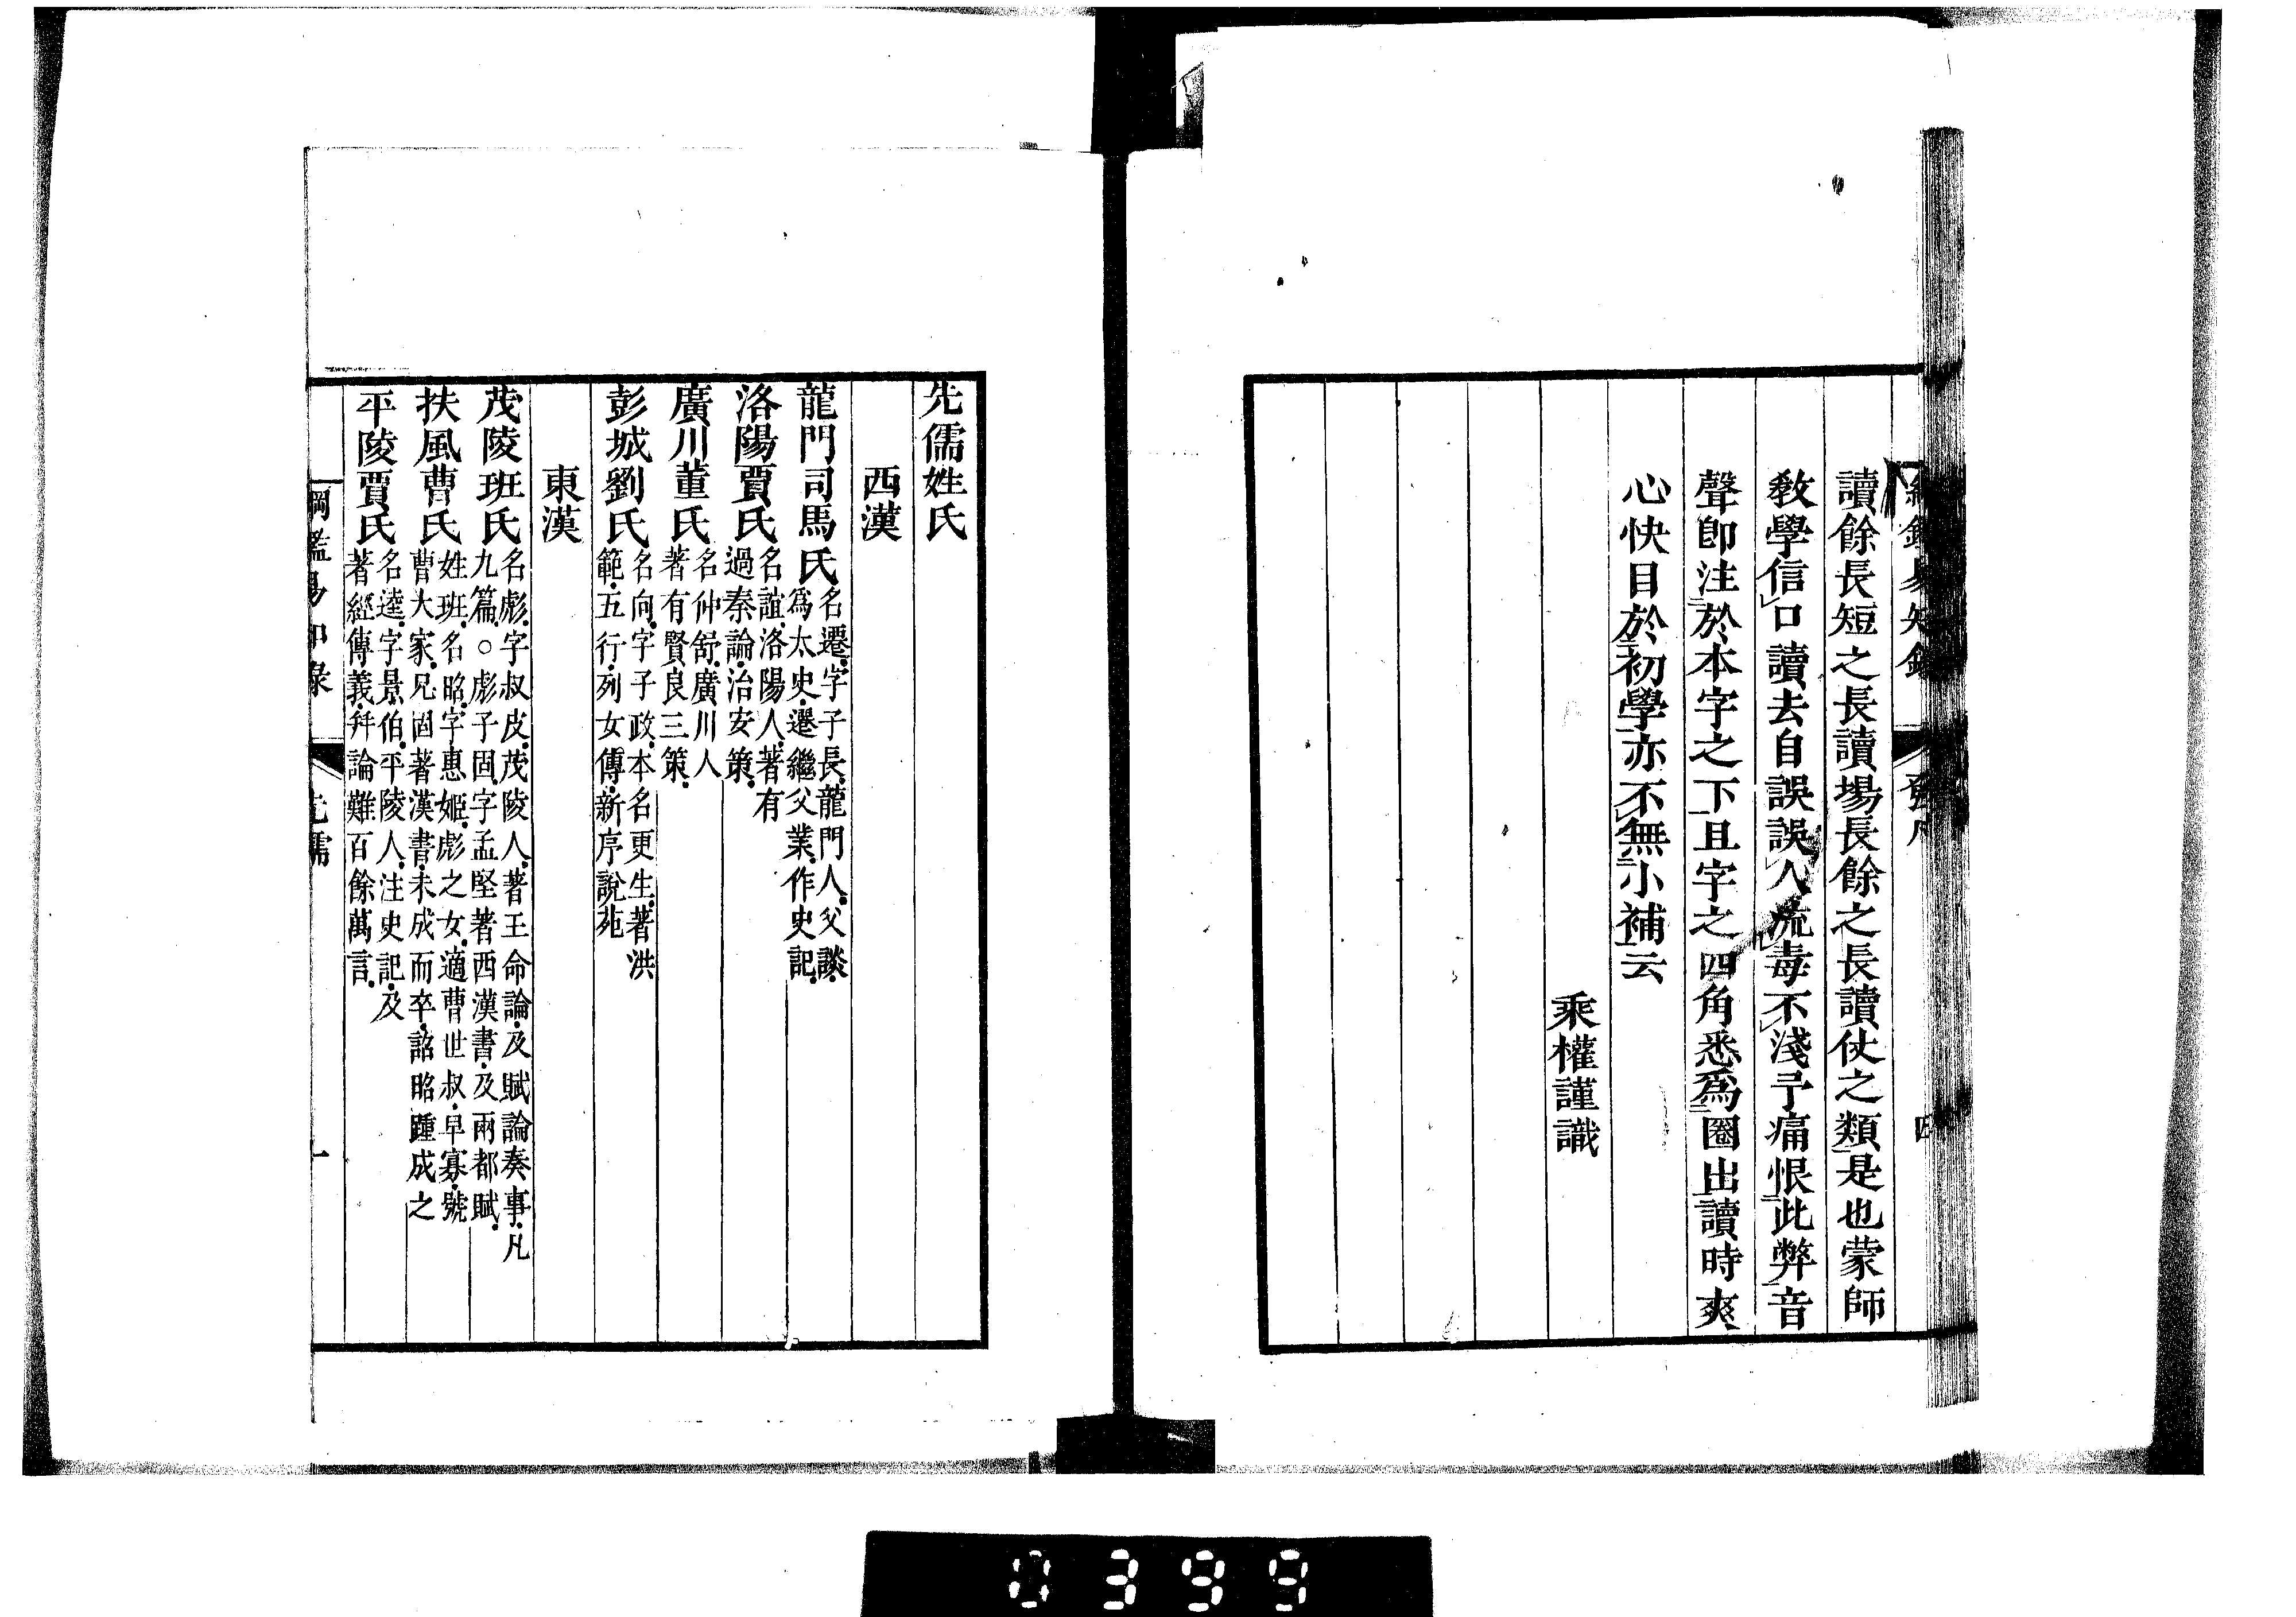 讀餘長短之長讀場長餘之長讀仗之類是也蒙師
教學信口讀去自誤誤人流毒不淺予痛恨此弊音
聲卽注於本字之下且字之四角悉爲圈出讀時爽
心快目於初學亦不無小補云
乘權謹識
先儒姓氏
西漢
龍門司馬氏
名遷字子長龍門人父談
爲太史遷繼父業作史記
洛陽賈氏
名誼洛陽人著有
過秦論治安策
廣川董氏
名仲舒廣川人
著有賢良三策
彭城劉氏
名向字子政本名更生著洪
範五行列女傳新序說苑
東漢
茂陵班氏
名彪字叔皮茂陵人著王命論及賦論奏事凡
九篇○彪子固字孟堅著西漢書及兩都賦
扶風曹氏
姓班名昭字惠姬彪之女適曹世叔早寡號
曹大家兄固著漢書未成而卒詔昭踵成之
平陵賈氏
名逵字景伯平陵人注史記及
著經傳義幷論難百餘萬言
綱鑑易知錄
先儒
一
0399